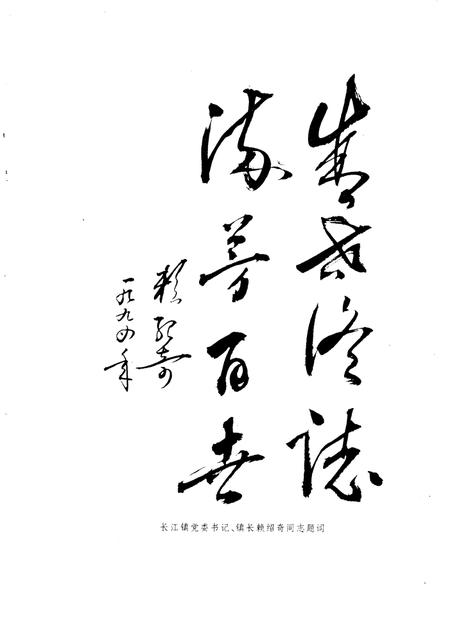 盛世修誌
流芳百世
赖绍奇
一九九四年
长江镇党委书记、镇长赖绍奇同志题词